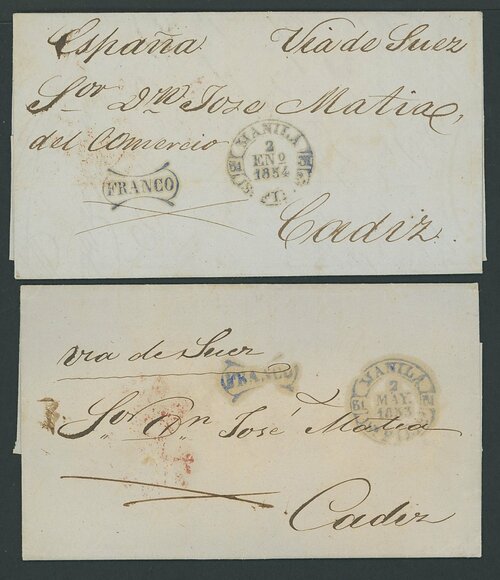 España Via de Suez
Sor Dn Jose Matia,
del Comercio
MANILA
2
ENO
1854
FRANCO
Cadiz.
via de Suez
FRANCO
MANILA
2
MAY.
1853
Sor Dn José Matia
Cadiz